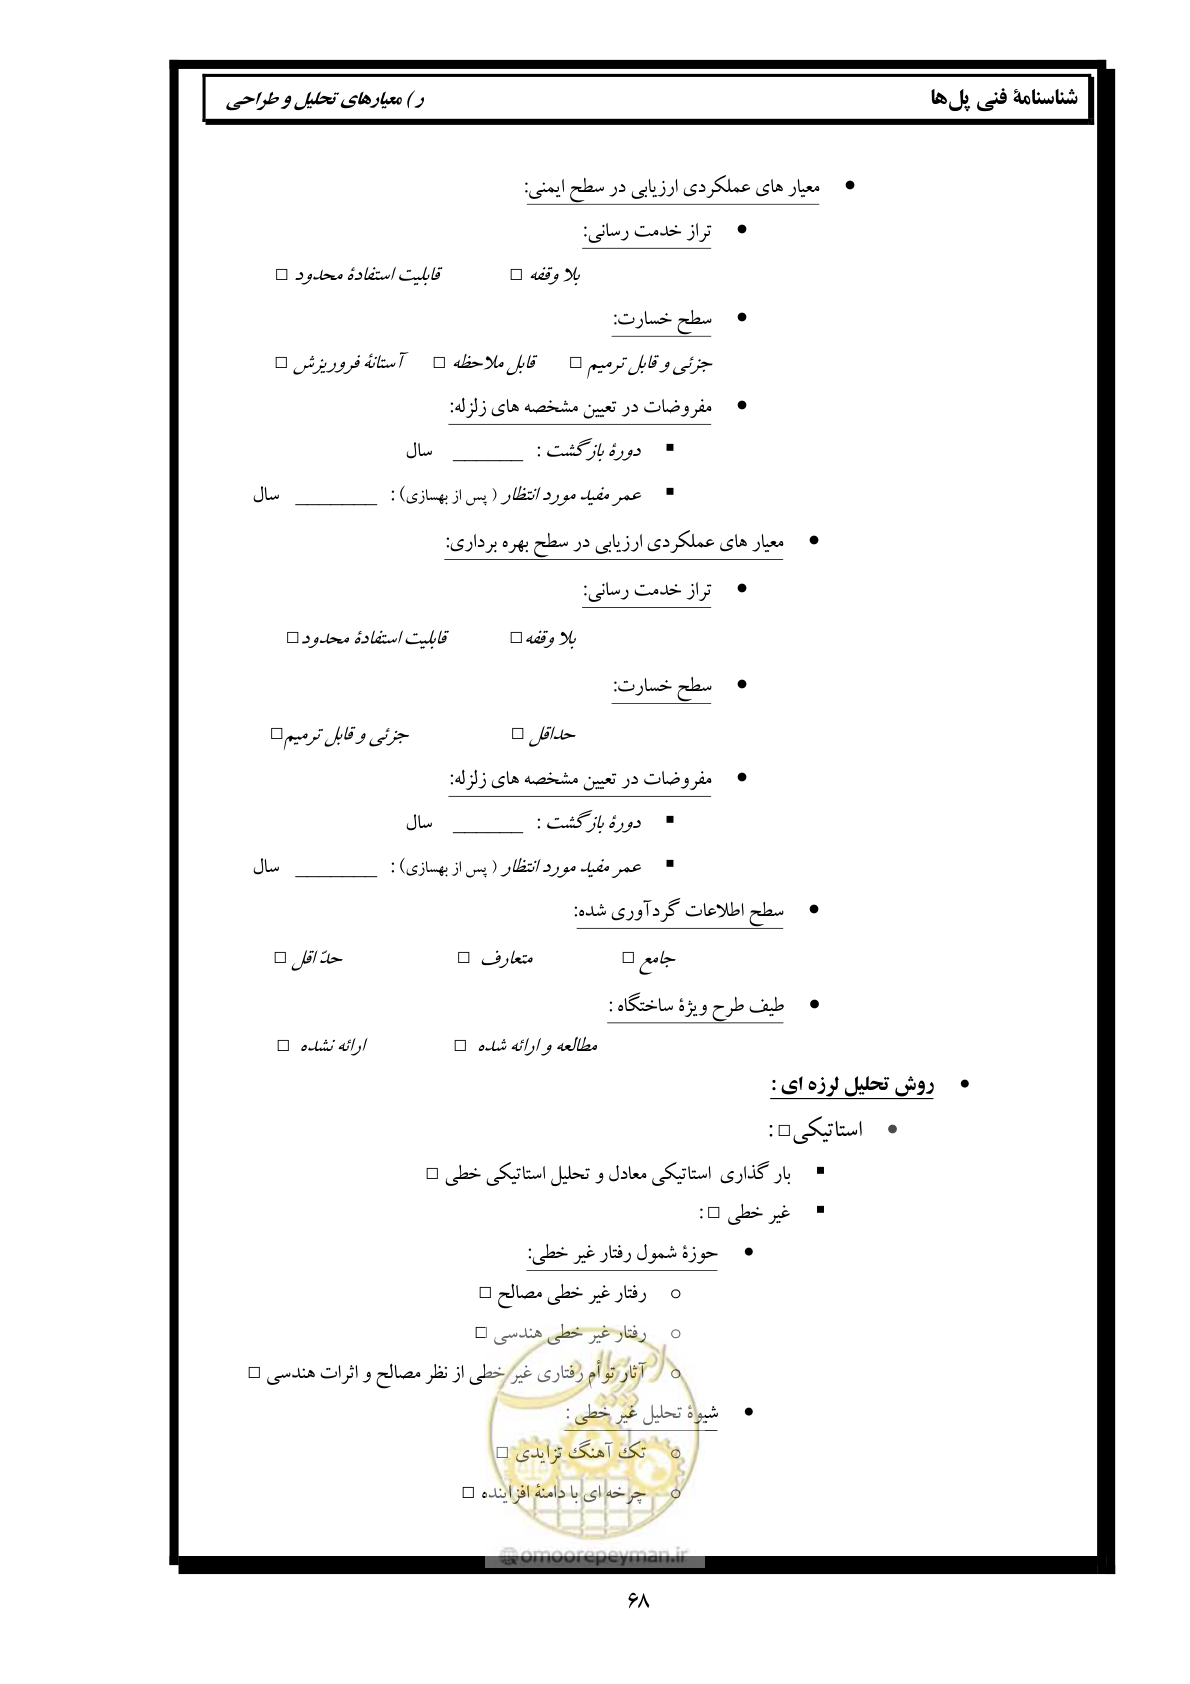 شناسنامهٔ فنی پل‌ها
ر ) معیارهای تحلیل و طراحی
● معیار های عملکردی ارزیابی در سطح ایمنی:
● تراز خدمت رسانی:
بلا وقفه □ قابلیت استفادهٔ محدود □
● سطح خسارت:
جزئی و قابل ترمیم □ قابل ملاحظه □ آستانهٔ فروریزش □
● مفروضات در تعیین مشخصه های زلزله:
■ دورهٔ بازگشت : _______ سال
■ عمر مفید مورد انتظار ( پس از بهسازی) : ________ سال
● معیار های عملکردی ارزیابی در سطح بهره برداری:
● تراز خدمت رسانی:
بلا وقفه □ قابلیت استفادهٔ محدود □
● سطح خسارت:
حداقل □ جزئی و قابل ترمیم □
● مفروضات در تعیین مشخصه های زلزله:
■ دورهٔ بازگشت : _______ سال
■ عمر مفید مورد انتظار ( پس از بهسازی) : ________ سال
● سطح اطلاعات گردآوری شده:
جامع □ متعارف □ حدّ اقل □
● طیف طرح ویژهٔ ساختگاه :
مطالعه و ارائه شده □ ارائه نشده □
● روش تحلیل لرزه ای :
● استاتیکی □ :
■ بار گذاری استاتیکی معادل و تحلیل استاتیکی خطی □
■ غیر خطی □ :
● حوزهٔ شمول رفتار غیر خطی:
○ رفتار غیر خطی مصالح □
○ رفتار غیر خطی هندسی □
○ آثار توأم رفتاری غیر خطی از نظر مصالح و اثرات هندسی □
● شیوهٔ تحلیل غیر خطی :
○ تک آهنگ تزایدی □
○ چرخه ای با دامنهٔ افزاینده □
امور پیمان
@omoorepeyman.ir
۶۸